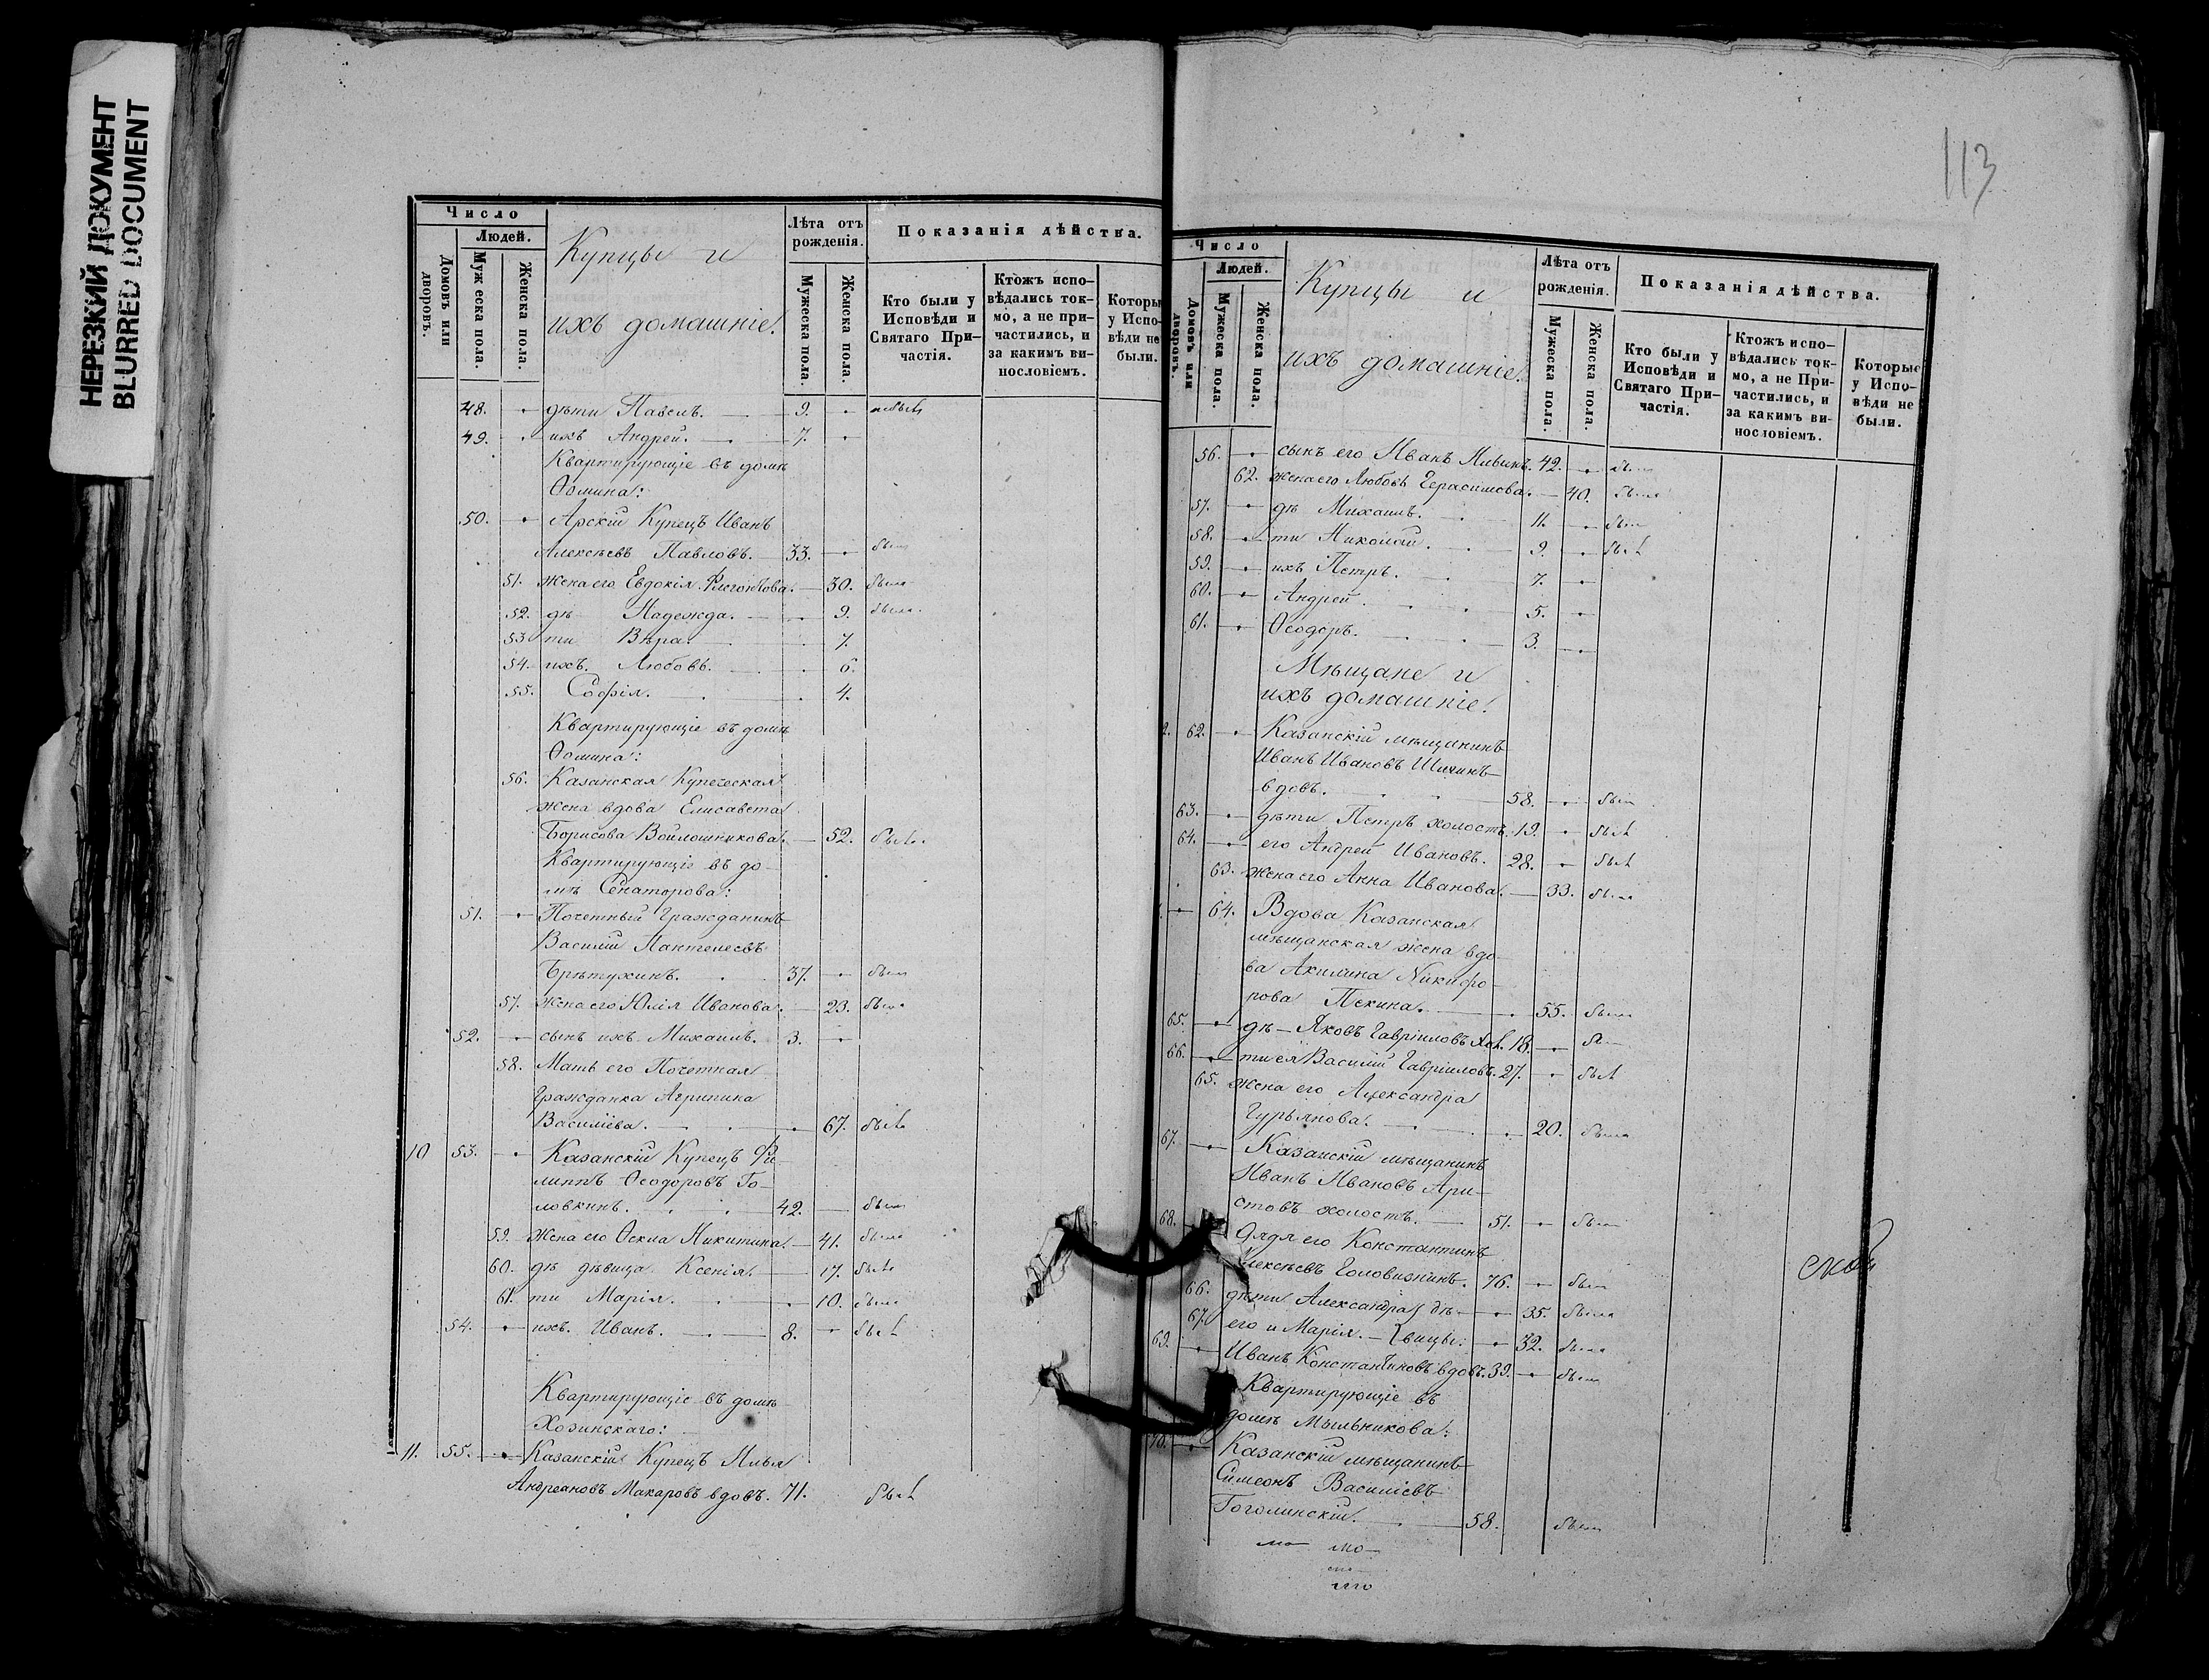 НЕРЕЗКИЙ ДОКУМЕНТ
BLURRED DOCUMENT
Число
Людей.
Домовъ или дворовъ.
Мужеска пола.
Женска пола.
Купцы и
ихъ домашніе.
Лѣта отъ рожденія.
Мужеска пола.
Женска пола.
Показанія дѣйства.
Кто были у Исповѣди и Святаго Причастія.
Ктожъ исповѣдались токмо, а не причастились, и за какимъ винословіемъ.
Которые у Исповѣди не были.
48. дѣти Павелъ. 9.
49. ихъ Андрей. 7.
Квартирующіе въ домѣ
Ѳомина:
50. Арскій Купецъ Иванъ
Алексѣевъ Павловъ. 33. былъ
51. жена его Евдокія 30. была
52. дѣ Надежда. 9. была
53. ти Вѣра. 7.
54. ихъ. Любовь. 6.
55. Софія. 4.
Квартирующіе въ домѣ
Ѳомина:
56. Казанская Купеческая
жена вдова Елисавета
Борисова Войлошникова. 52. была
Квартирующіе въ до-
мѣ Сенаторова:
51. Почетный Гражданинъ
Василій Пантелеевъ
37. былъ
57. жена его Юлія Иванова. 23. была
52. сынъ ихъ Михаилъ. 3.
58. Мать его Почетная
Гражданка Агрипина
Василіева. 67. была
10 53. Казанскій Купецъ Фи-
липпъ Ѳеодоровъ Го-
ловкинъ. 42. былъ
59. жена его Ѳекла Никитина. 41. была
60. дѣ дѣвица Ксенія. 17. была
61. ти Марія. 10. была
54. ихъ. Иванъ. 8. былъ
Квартирующіе въ домѣ
Хозинскаго:
11. 55. Казанскій Купецъ Илья
Андреановъ Макаровъ вдовъ. 71. былъ
113
Число
Людей.
Домовъ или дворовъ.
Мужеска пола.
Женска пола.
Купцы и
ихъ домашніе.
Лѣта отъ рожденія.
Мужеска пола.
Женска пола.
Показанія дѣйства.
Кто были у Исповѣди и Святаго Причастія.
Ктожъ исповѣдались токмо, а не Причастились, и за какимъ винословіемъ.
Которые у Исповѣди не были.
56. сынъ его Иванъ Ильинъ. 42. былъ
62. жена его Любовь Герасимова. 40. была
57. дѣ Михаилъ. 11. былъ
58. ти Николай. 9. былъ
59. ихъ Петръ. 7.
60. Андрей. 5.
61. Ѳеодоръ. 3.
Мѣщане и
ихъ домашніе.
62. Казанскій мѣщанинъ
Иванъ Ивановъ
вдовъ. 58. былъ
63. дѣти Петръ холостъ. 19. былъ
64. его Андрей Ивановъ. 28. былъ
63. жена его Анна Иванова. 33. была
64. Вдова Казанская
мѣщанская жена вдо-
ва Акилина Никифо-
рова Пекина. 55. была
65. дѣ- Яковъ Гавріиловъ хол. 18. былъ
66. ти ея Василій Гавріиловъ. 27. былъ
65. жена его Александра
Гурьянова. 20. была
67. Казанскій мѣщанинъ
Иванъ Ивановъ Ари-
стовъ холостъ. 51. былъ
68. Дядя его Константинъ
Алексѣевъ Головизнинъ. 76. былъ
66. дѣти Александра дѣ- 35. была
67. его и Марія. вицы: 32. была
69. Иванъ Константиновъ вдовъ. 39. былъ
Квартирующіе въ
домѣ Мыльникова:
70. Казанскій мѣщанинъ
Симеонъ Василіевъ
Гоголинскій. 58. былъ